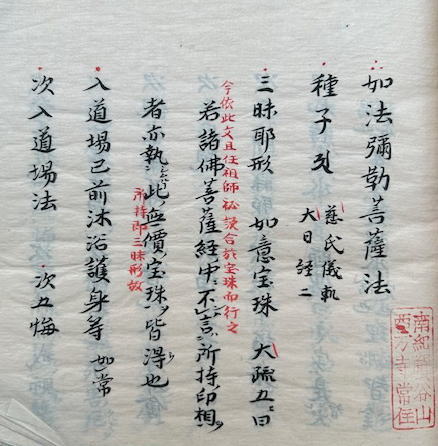 如法彌勒菩薩法
種子 慈氏儀軌
大日經二
三昧耶形 如意宝珠 大疏五曰
今依此文且任祖師秘決合於宝珠而行之
若諸佛菩薩経中不言所持印相
者亦執此無價宝珠皆得也
所持即三昧形故
入道場已前沐浴護身等 如常
次入道場法 次五悔
南紀谷山
西方寺常住